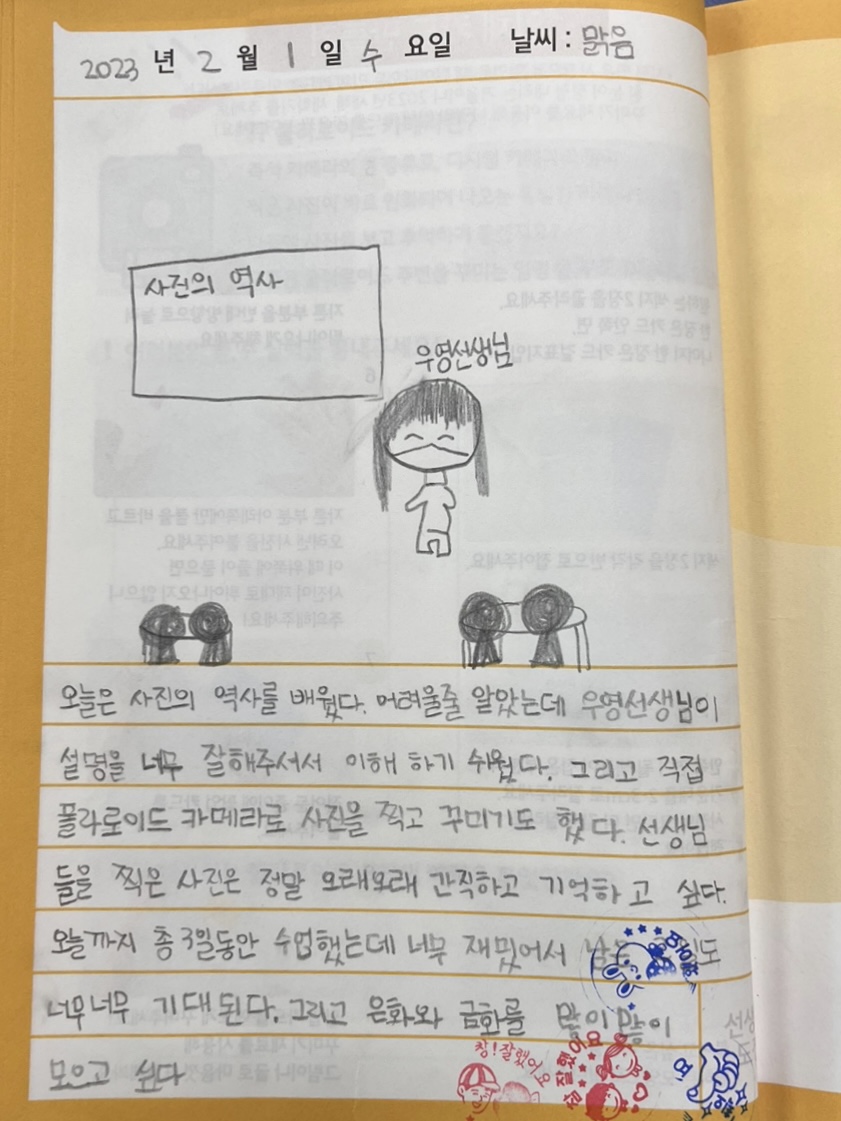 2023 년 2 월 1 일 수 요일 날씨 : 맑음
사진의 역사
우영선생님
오늘은 사진의 역사를 배웠다. 어려울줄 알았는데 우영선생님이
설명을 너무 잘해주셔서 이해 하기 쉬웠다. 그리고 직접
폴라로이드 카메라로 사진을 찍고 꾸미기도 했다. 선생님
들을 찍은 사진은 정말 오래오래 간직하고 기억하고 싶다.
오늘까지 총 3일동안 수업했는데 너무 재밌어서 남은
너무너무 기대된다. 그리고 은화와 금화를 많이많이
모으고 싶다
참! 잘했어요
참 잘했어요